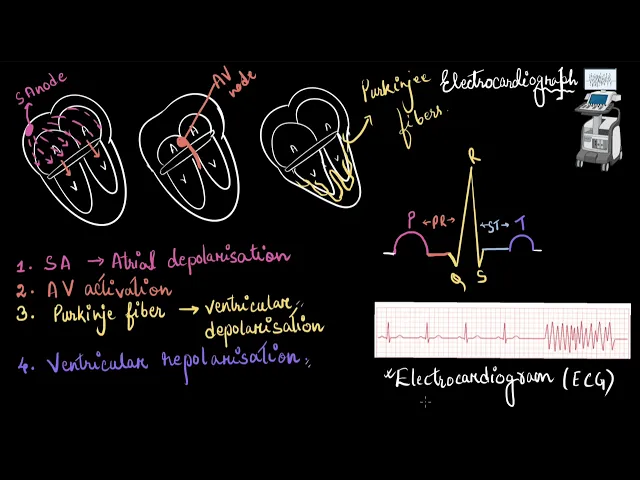 SA node
A
A
V
V
AV
node
A
A
V
V
Purkinjee
fibers.
A
A
V
V
Electrocardiograph
R
P
PR
ST
T
Q
S
1. SA → Atrial depolarisation
2. AV activation
3. Purkinje fiber → ventricular
depolarisation
4. Ventricular repolarisation
*Electrocardiogram (ECG)